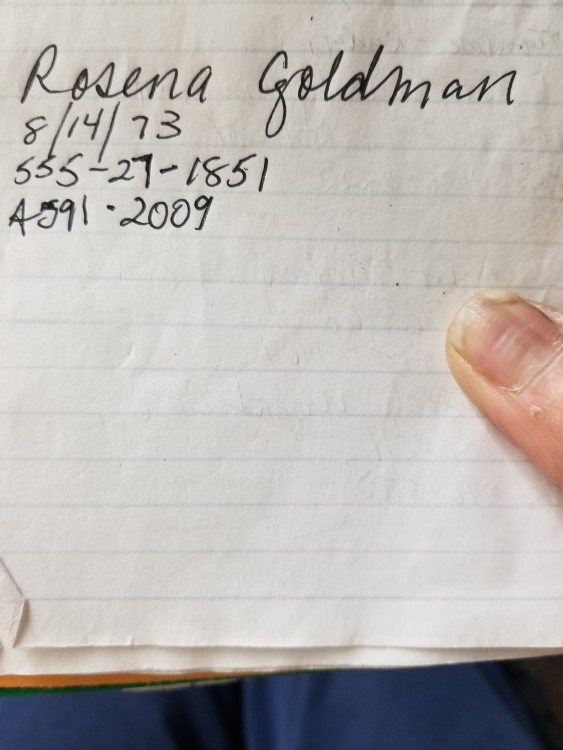 Rosena Goldman
8/14/73
555-27-1851
A591-2009